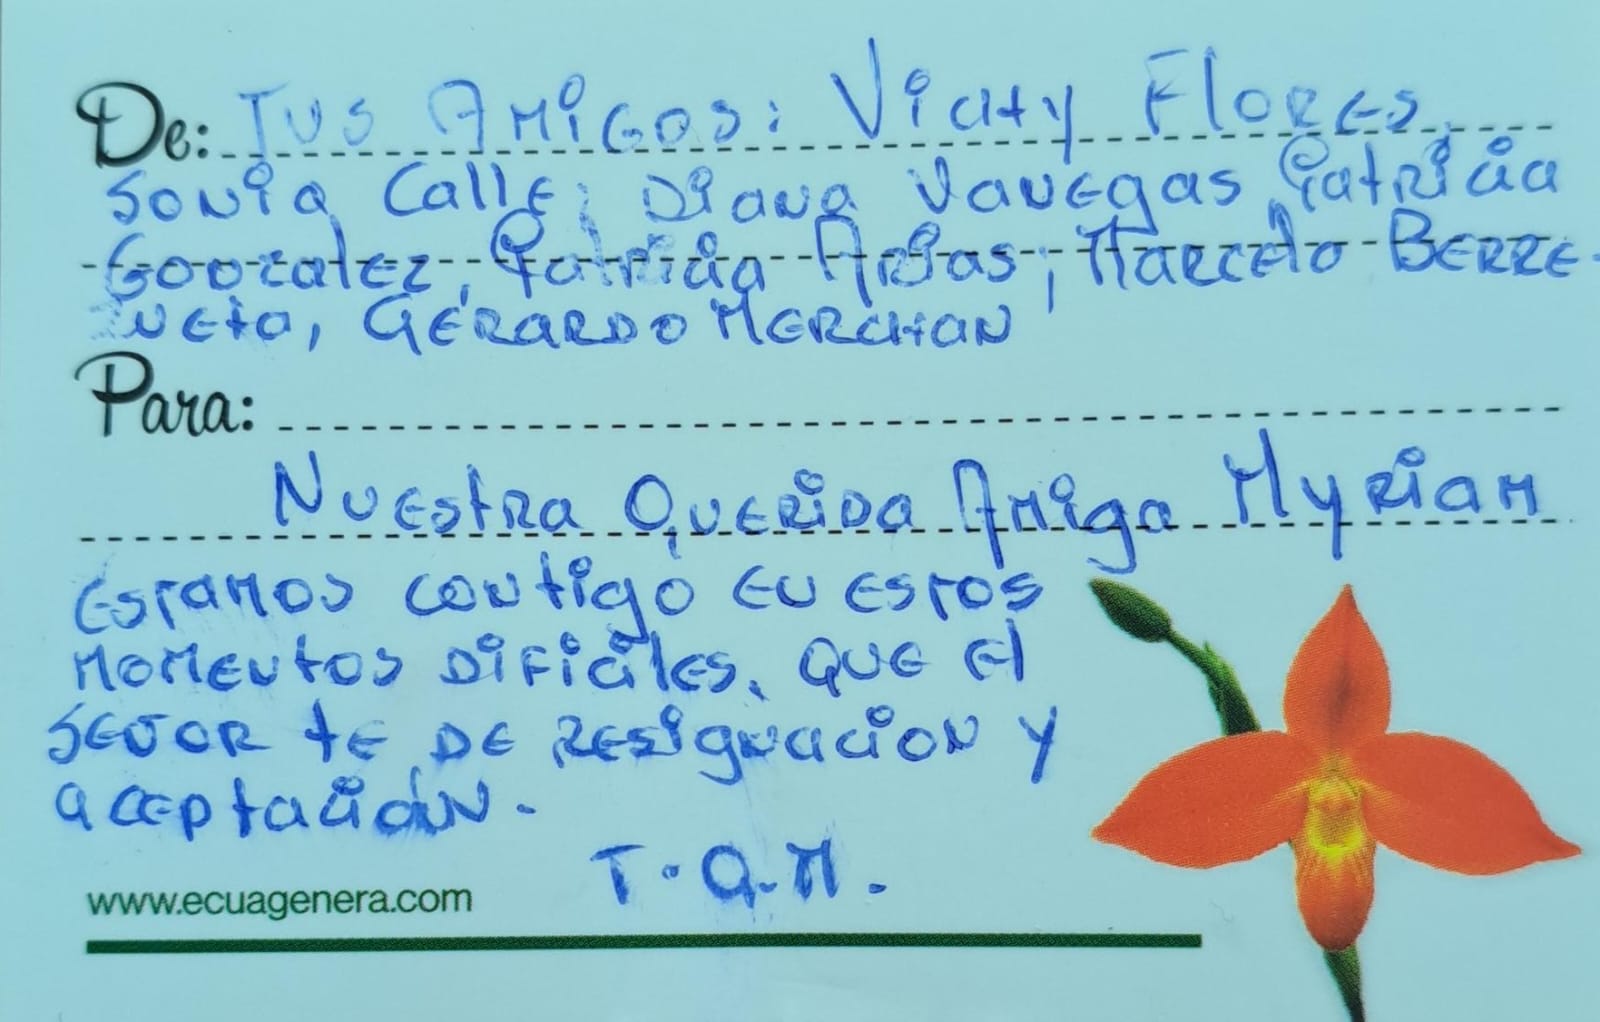 De: Tus Amigos: Vicky Flores,
Sonia Calle; Diana Vanegas, Patricia
Gonzalez, Patricia Arias; Marcelo Berre-
zueta, Gerardo Merchan
Para:
Nuestra Querida Amiga Myriam
Estamos contigo en estos
momentos dificiles. Que el
Señor te de resignacion y
aceptación.-
T.Q.M.
www.ecuagenera.com